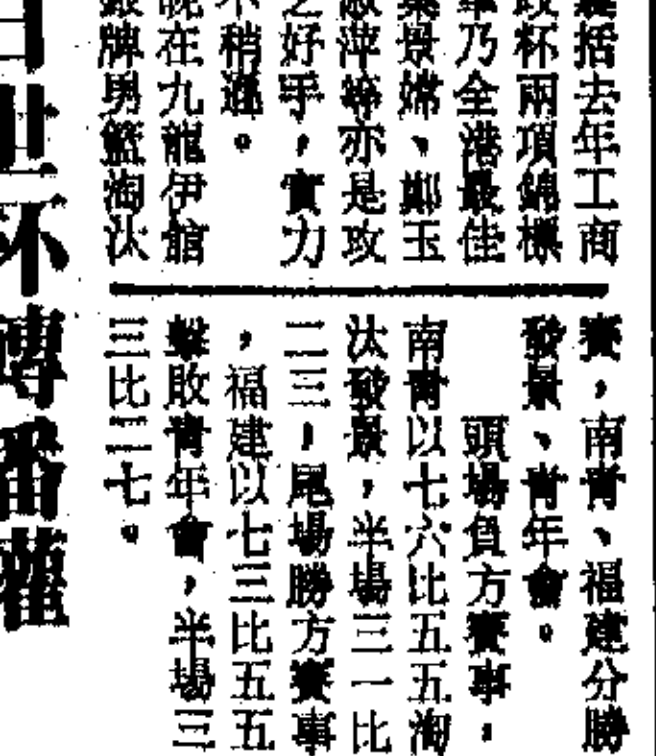 括去年工商
杯兩項錦標
乃全港最佳
景嫦、鄺玉
萍等亦是攻
之好手，實力
不稍遜。
晚在九龍伊館
銀牌男籃淘汰
賽，南青、福建分勝
發景、青年會。
頭場負方賽事，
南青以七六比五五淘
汰發景，半場三一比
二三，尾場勝方賽事
，福建以七三比五五
擊敗青年會，半場三
三比二七。
世杯轉播權